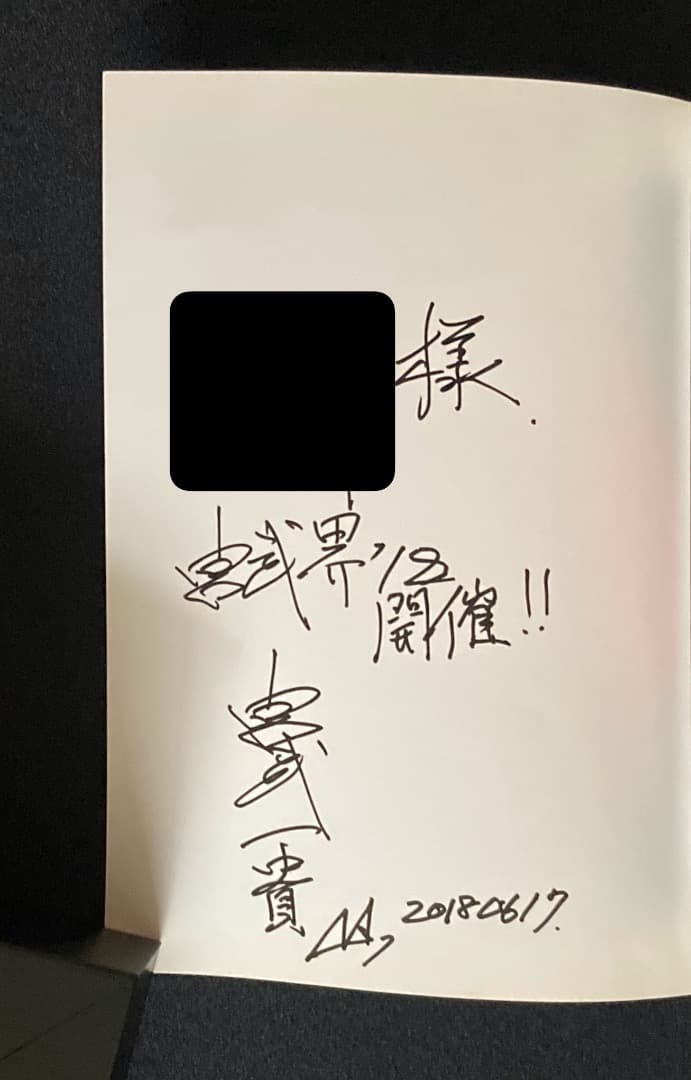 様.
宮武界'18
開催!!
宮武
一貴
20180617.